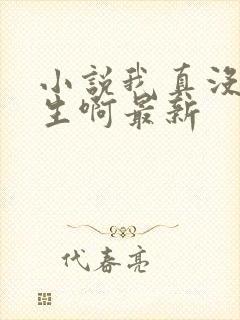 小説我真没
生啊最新
代春亮